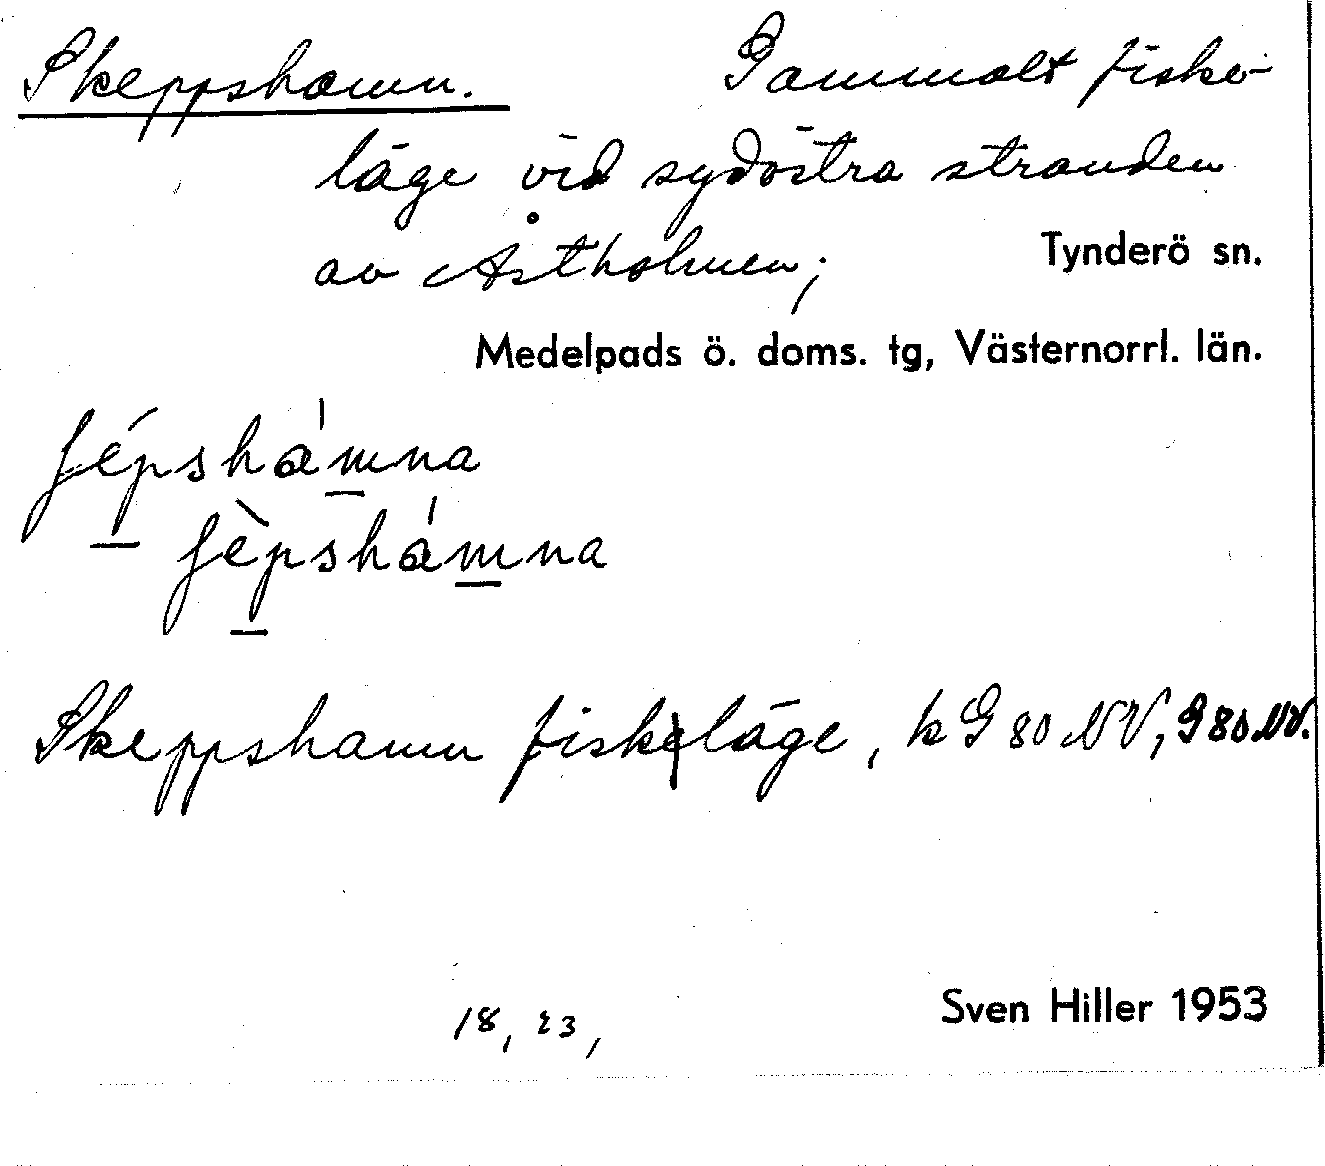 Skeppshamn. Gammalt fiske-
läge vid sydöstra stranden
av Åstholmen; Tynderö sn.
Medelpads ö. doms. tg, Västernorrl. län.
ʃépshámna
ʃèpshámna
Skeppshamn fiskeläge, k G 80 NV, G 80 NV.
18, 23,
Sven Hiller 1953